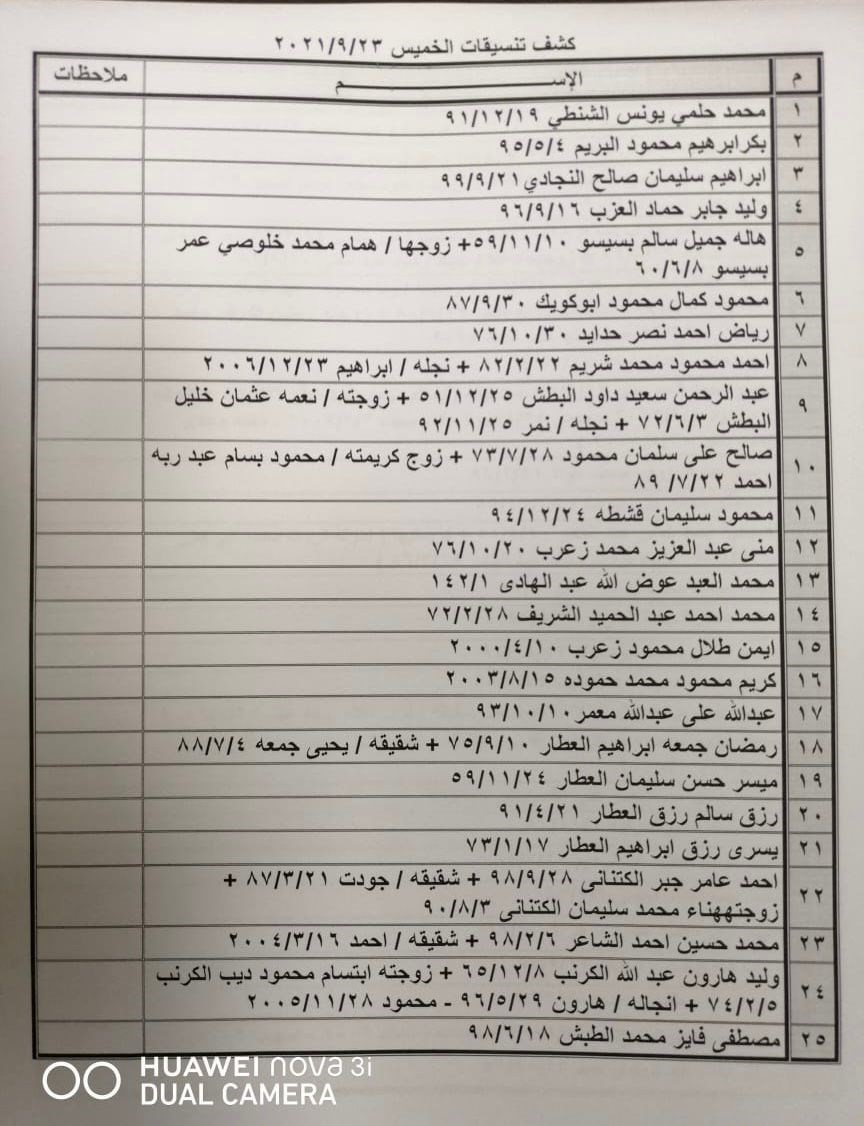 كشف تنسيقات الخميس ٢٠٢١/٩/٢٣
م الإســـــــــــم ملاحظات
١ محمد حلمي يونس الشنطي ٩١/١٢/١٩
٢ بكرابرهيم محمود البريم ٩٥/٥/٤
٣ ابراهيم سليمان صالح النجادي ٩٩/٩/٢١
٤ وليد جابر حماد العزب ٩٦/٩/١٦
٥ هاله جميل سالم بسيسو ٥٩/١١/١٠+ زوجها / همام محمد خلوصي عمر
بسيسو ٦٠/٦/٨
٦ محمود كمال محمود ابوكويك ٨٧/٩/٣٠
٧ رياض احمد نصر حدايد ٧٦/١٠/٣٠
٨ احمد محمود محمد شريم ٨٢/٢/٢٢ + نجله / ابراهيم ٢٠٠٦/١٢/٢٣
٩ عبد الرحمن سعيد داود البطش ٥١/١٢/٢٥ + زوجته / نعمه عثمان خليل
البطش ٧٢/٦/٣ + نجله / نمر ٩٢/١١/٢٥
١٠ صالح على سلمان محمود ٧٣/٧/٢٨ + زوج كريمته / محمود بسام عبد ربه
احمد ٧/٢٢/ ٨٩
١١ محمود سليمان قشطه ٩٤/١٢/٢٤
١٢ منى عبد العزيز محمد زعرب ٧٦/١٠/٢٠
١٣ محمد العبد عوض الله عبد الهادى ١٤٢/١
١٤ محمد احمد عبد الحميد الشريف ٧٢/٢/٢٨
١٥ ايمن طلال محمود زعرب ٢٠٠٠/٤/١٠
١٦ كريم محمود محمد حموده ٢٠٠٣/٨/١٥
١٧ عبدالله على عبدالله معمر ٩٣/١٠/١٠
١٨ رمضان جمعه ابراهيم العطار ٧٥/٩/١٠ + شقيقه / يحيى جمعه ٨٨/٧/٤
١٩ ميسر حسن سليمان العطار ٥٩/١١/٢٤
٢٠ رزق سالم رزق العطار ٩١/٤/٢١
٢١ يسرى رزق ابراهيم العطار ٧٣/١/١٧
٢٢ احمد عامر جبر الكتنانى ٩٨/٩/٢٨ + شقيقه / جودت ٨٧/٣/٢١ +
زوجتههناء محمد سليمان الكتنانى ٩٠/٨/٣
٢٣ محمد حسين احمد الشاعر ٩٨/٢/٦ + شقيقه / احمد ٢٠٠٤/٣/١٦
٢٤ وليد هارون عبد الله الكرنب ٦٥/١٢/٨ + زوجته ابتسام محمود ديب الكرنب
٧٤/٢/٥ + انجاله / هارون ٩٦/٥/٢٩ - محمود ٢٠٠٥/١١/٢٨
٢٥ مصطفى فايز محمد الطبش ٩٨/٦/١٨
HUAWEI nova 3i
DUAL CAMERA